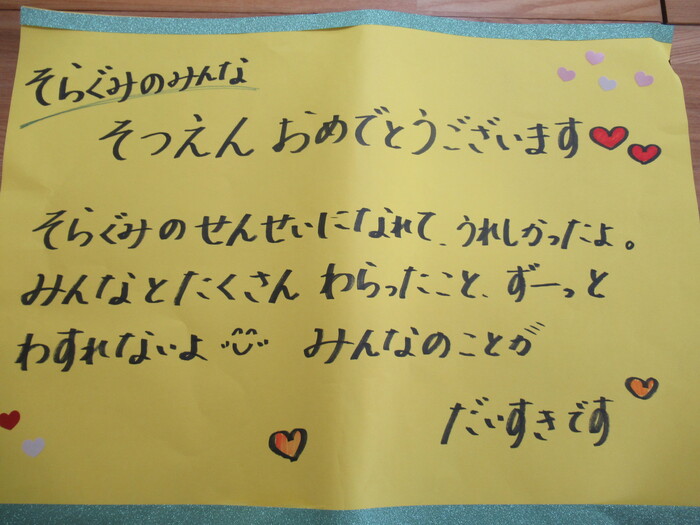 そらぐみのみんな
そつえん おめでとうございます
そらぐみのせんせいになれて、うれしかったよ。
みんなとたくさん わらったこと、ずーっと
わすれないよ みんなのことが
だいすきです